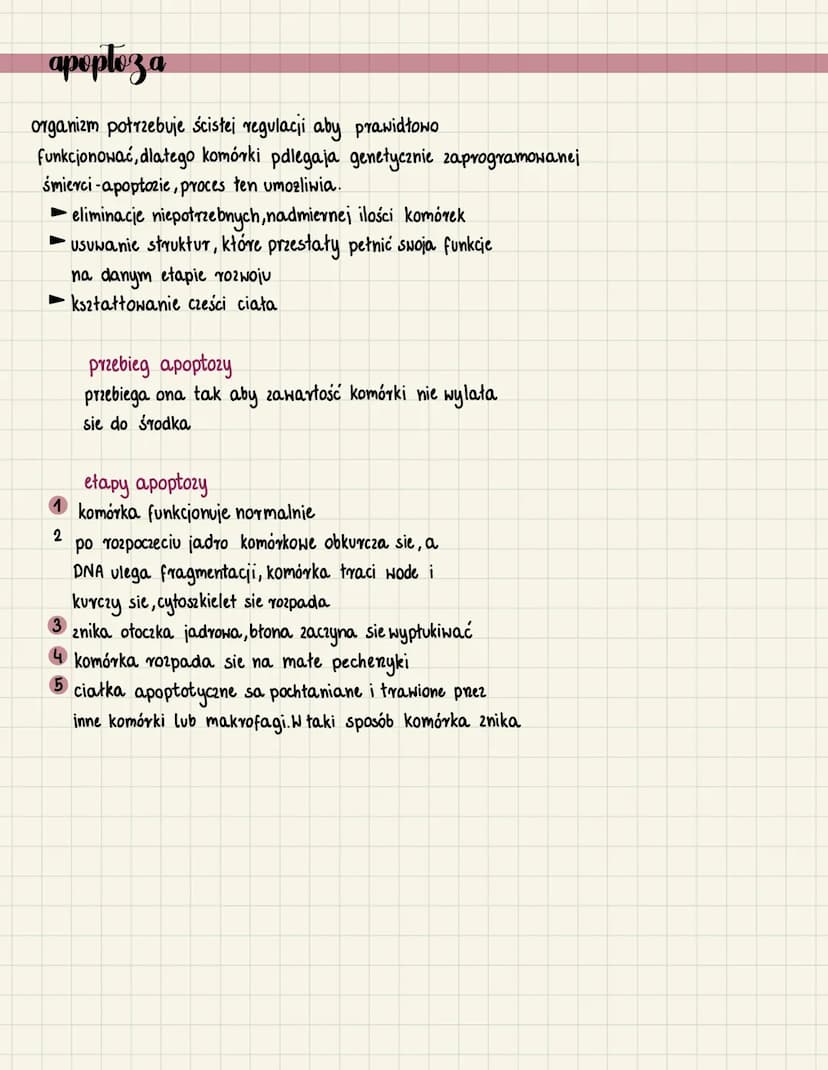 apoptoza
organizm potrzebuje ścisłej regulacji aby prawidłowo
funkcjonować, dlatego komórki pdlegaja genetycznie zaprogramowanej
śmierci - apoptozie, proces ten umozliwia.
► eliminacje niepotrzebnych, nadmiernej ilości komórek
► usuwanie struktur, które przestały pełnić swoja funkcje
na danym etapie rozwoju
► kształtowanie cześci ciała
przebieg apoptozy
przebiega ona tak aby zawartość komórki nie wylała
sie do środka
etapy apoptozy
1 komórka funkcjonuje normalnie
2 po rozpoczeciu jadro komórkowe obkurcza sie, a
DNA ulega fragmentacji, komórka traci wode i
kurczy sie, cytoszkielet sie rozpada
3 znika otoczka jadrowa, błona zaczyna sie wypłukiwać
4 komórka rozpada sie na małe pecherzyki
5 ciałka apoptotyczne sa pochłaniane i trawione przez
inne komórki lub makrofagi. W taki sposób komórka znika